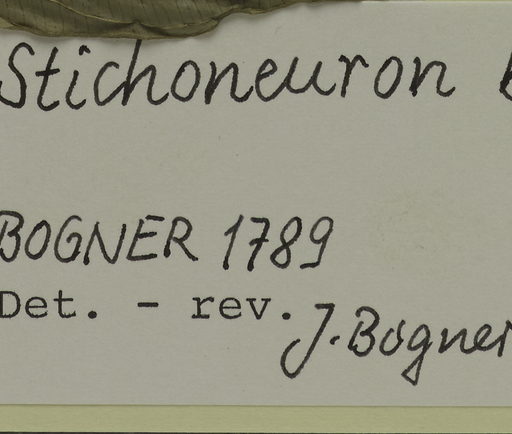 Stichoneuron
BOGNER 1789
Det. - rev.
J. Bogner